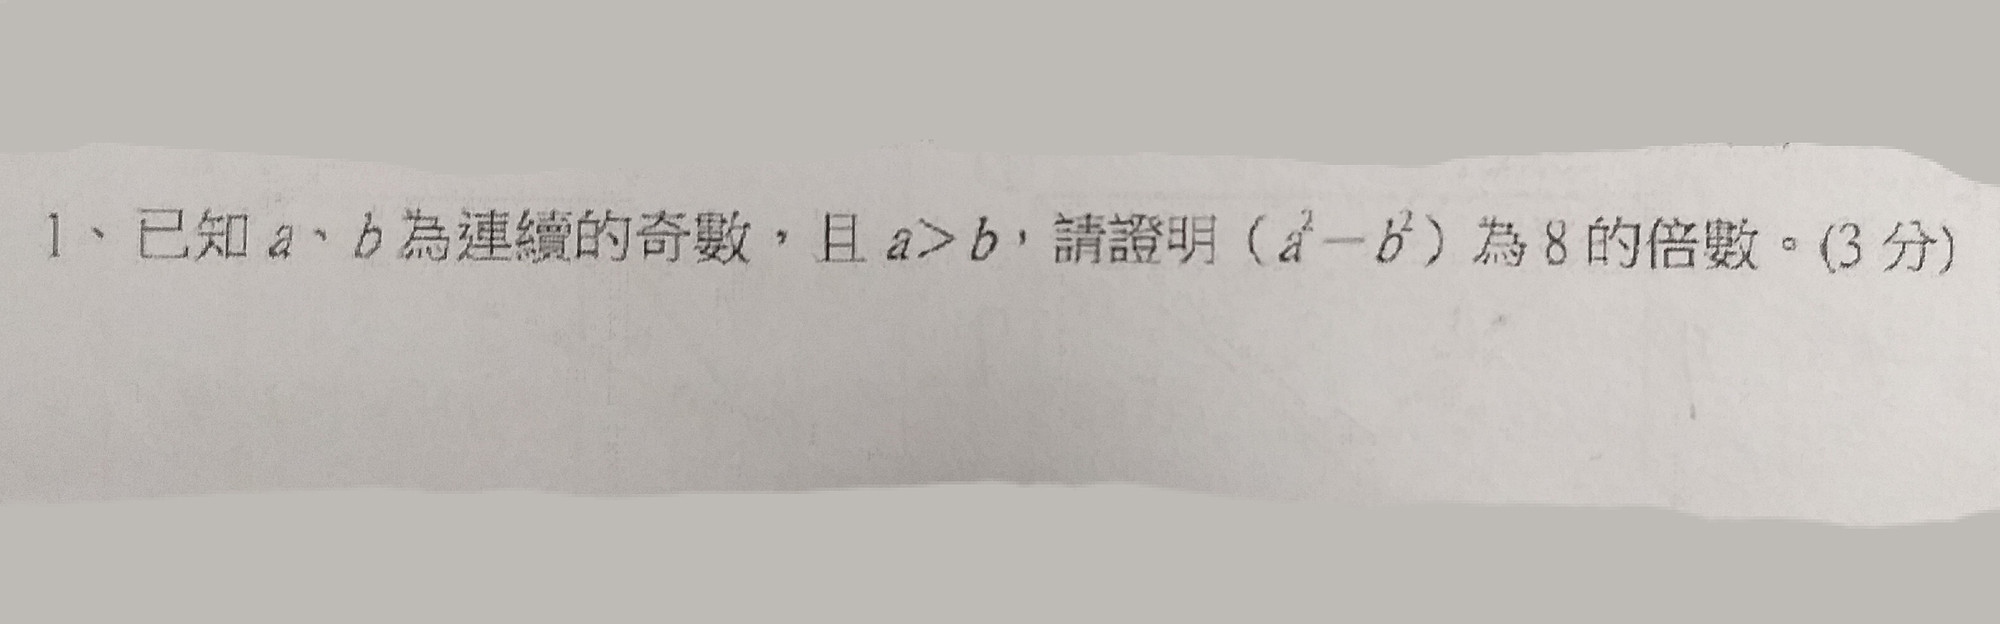 1、已知 a、b 為連續的奇數，且 a＞b，請證明（a²－b²）為 8 的倍數。(3 分)